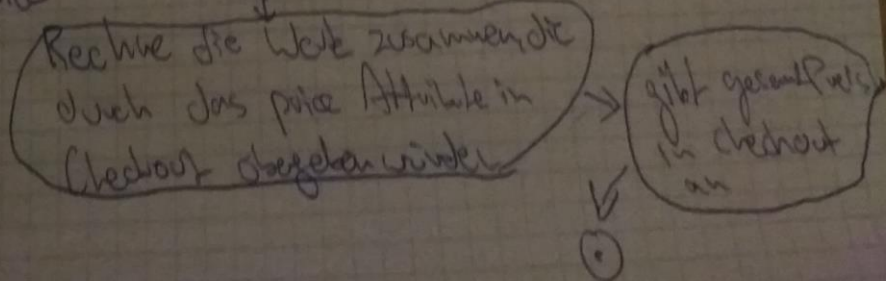 Rechne die Werte zusammen, die
durch das price Attribute in
Checkout abgegeben wurden
gibt gesamtPreis
in checkout
an